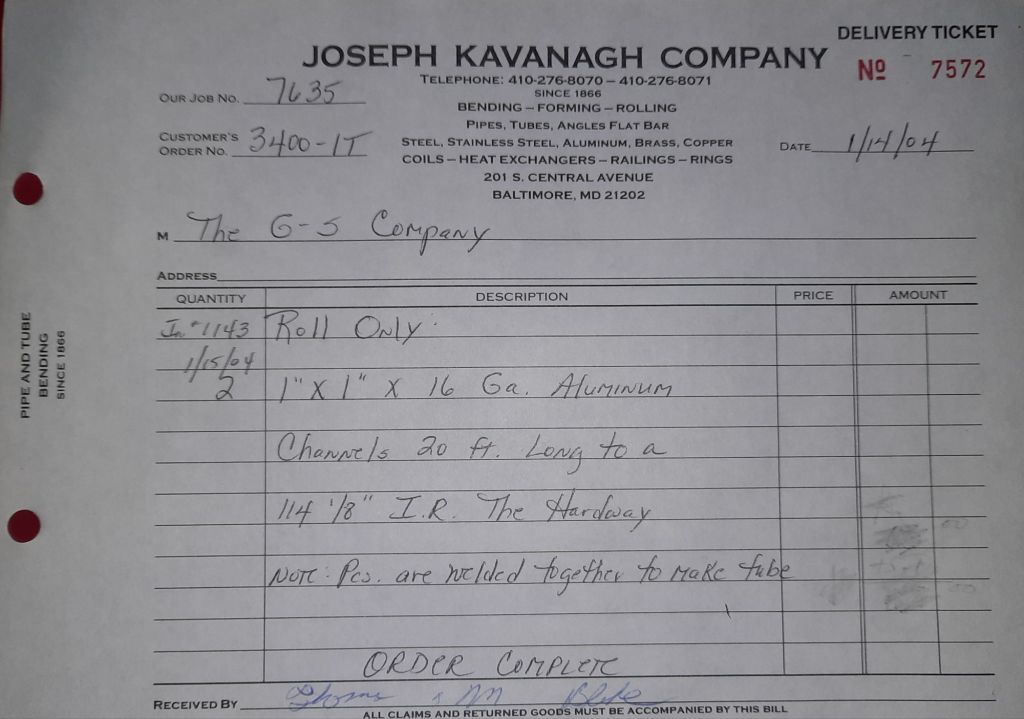 DELIVERY TICKET
JOSEPH KAVANAGH COMPANY
Nº 7572
TELEPHONE: 410-276-8070 – 410-276-8071
SINCE 1866
OUR JOB NO. 7635
BENDING – FORMING – ROLLING
PIPES, TUBES, ANGLES FLAT BAR
CUSTOMER'S ORDER NO. 3400-1T
STEEL, STAINLESS STEEL, ALUMINUM, BRASS, COPPER
DATE 1/14/04
COILS – HEAT EXCHANGERS – RAILINGS – RINGS
201 S. CENTRAL AVENUE
BALTIMORE, MD 21202
M The G-S Company
ADDRESS
QUANTITY DESCRIPTION PRICE AMOUNT
In #1143 Roll Only
1/15/04
2 1" X 1" X 16 Ga. Aluminum
Channels 20 ft. Long to a
114 1/8" I.R. The Hardway
Note: Pcs. are welded together to make tube
ORDER COMPLETE
RECEIVED BY Blake
ALL CLAIMS AND RETURNED GOODS MUST BE ACCOMPANIED BY THIS BILL
PIPE AND TUBE
BENDING
SINCE 1866